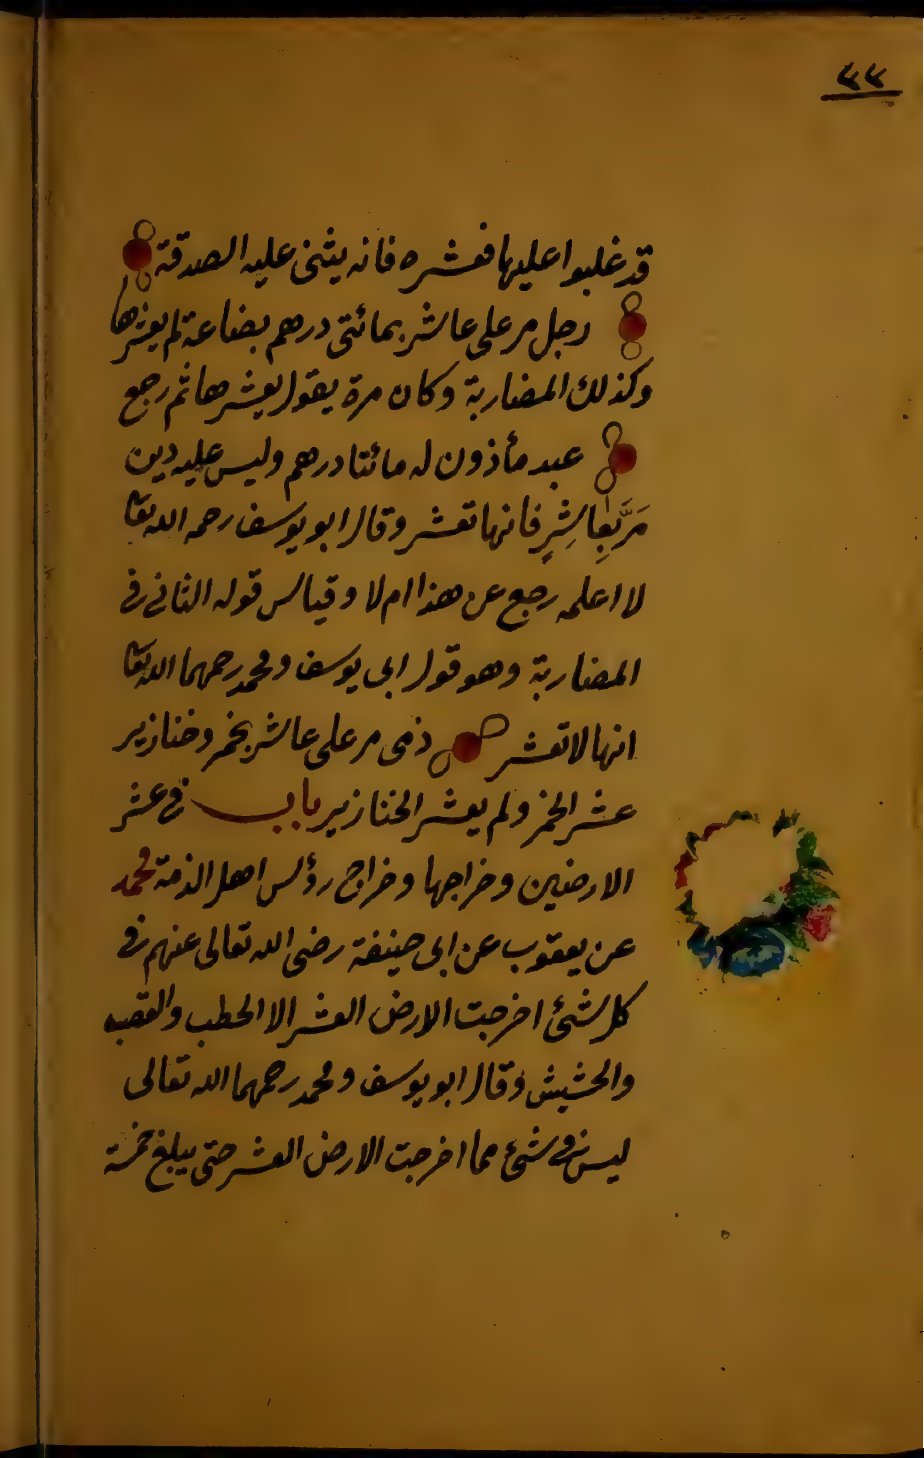 ٢٢
قد غلبوا عليها فعشره فانه يثنى عليه الصدقة
رجل مر على عاشر بمائتى درهم بضاعة لم يعشرها
وكذلك المضاربة وكان مرة يقول يعشرها ثم رجع
عبد مأذون له مائتا درهم وليس عليه دين
مَرَّ بِعَاشِرٍ فانها تعشر وقال ابو يوسف رحمه الله تعا
لا اعلمه رجع عن هذا ام لا وقياس قوله الثانى فى
المضاربة وهو قول ابى يوسف ومحمد رحمهما الله تعا
انها لا تعشر ذمى مر على عاشر بخمر وخنازير
عشر الخمر ولم يعشر الخنازير باب فى عشر
الارضين وخراجها وخراج رؤس اهل الذمة محمد
عن يعقوب عن ابى حنيفة رضى الله تعالى عنهم فى
كل شئ اخرجت الارض العشر الا الحطب والقصب
والحشيش وقال ابو يوسف ومحمد رحمهما الله تعالى
ليس فى شئ مما اخرجت الارض العشر حتى يبلغ خمسة